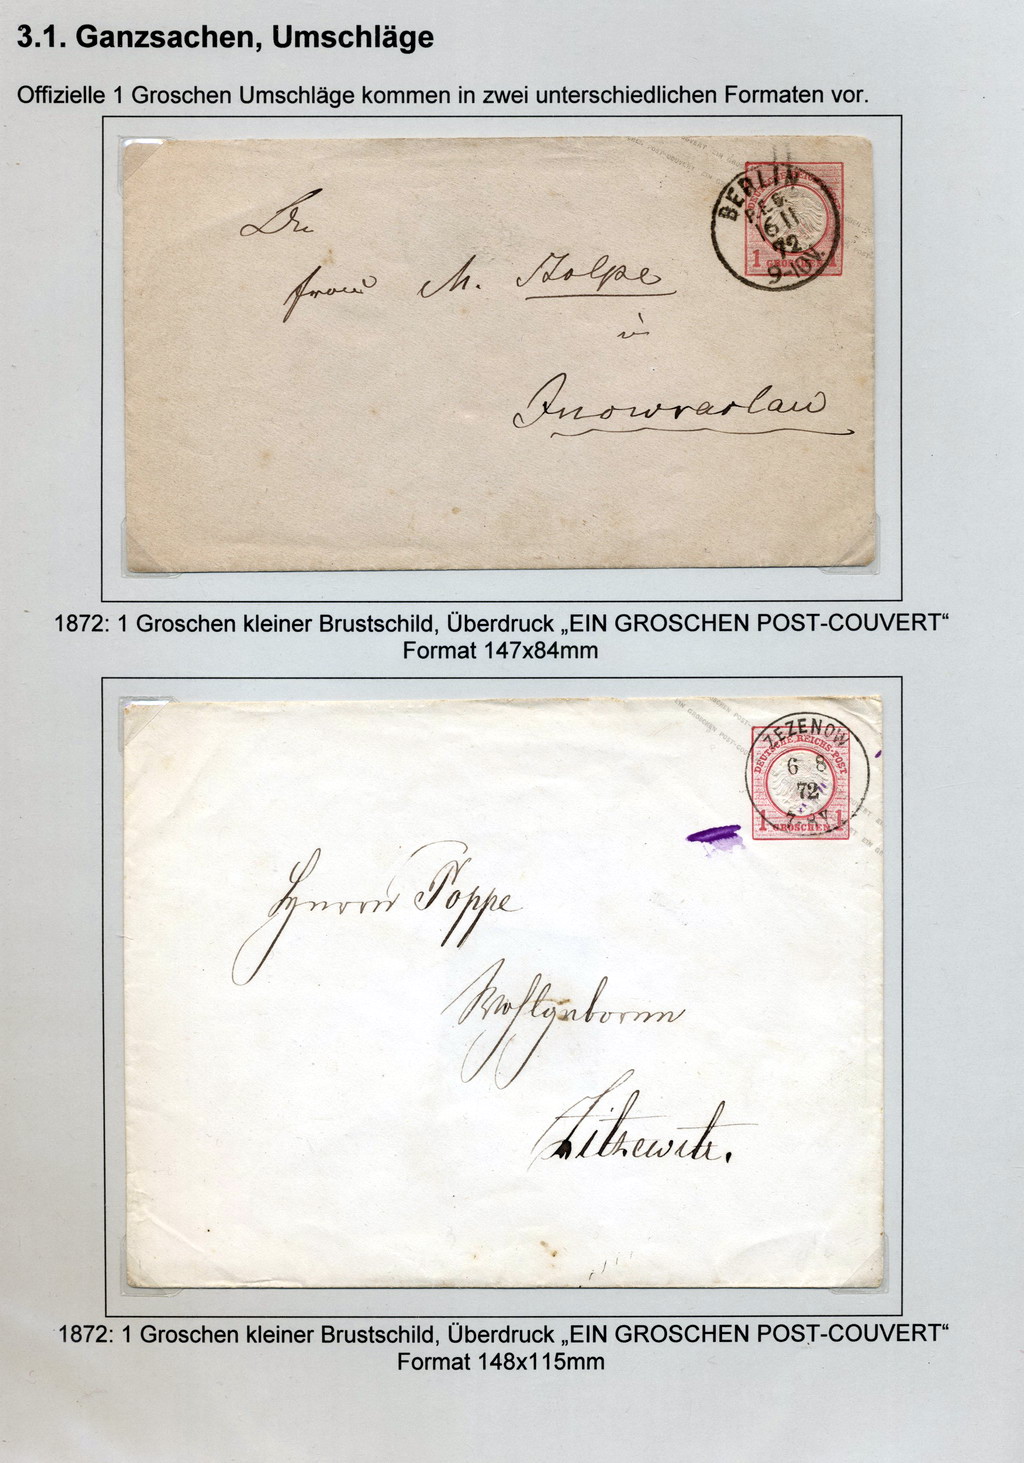 3.1. Ganzsachen, Umschläge
Offizielle 1 Groschen Umschläge kommen in zwei unterschiedlichen Formaten vor.
BERLIN
P.E. 6.
16 11
72
9-10V.
1 GROSCHEN 1
Frau M. Stolpe
in
Inowraclaw
1872: 1 Groschen kleiner Brustschild, Überdruck „EIN GROSCHEN POST-COUVERT“
Format 147x84mm
ZEZENOW
6 8
72
DEUTSCHE REICHS-POST
1 GROSCHEN 1
Herrn Poppe
Wohlgeboren
Zitzewitz.
1872: 1 Groschen kleiner Brustschild, Überdruck „EIN GROSCHEN POST-COUVERT“
Format 148x115mm